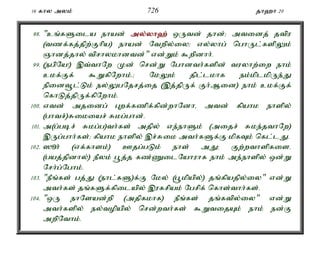 16 கால அலம்
726
தாஹா 20
98. "உங்களுடைய நாயன் அல்லாஹ் ஒருவன் தான்; அவனைத் தவிர (வணக்கத்திற்குரிய) நாயன் வேறில்லை; எல்லாப் பொருட்களிலும் ஞானத்தால் விசாலமானவன்" என்றும் கூறினார்.
99. (நபியே!) இவ்வாறே முன் சென்று போனவர்களின் வரலாற்றை நாம் உமக்குக் கூறுகிறோம்; மேலும் திட்டமாக நம்மிடமிருந்து நினைவூட்டும் நல்லுபதேசத்தை (இத்திருக் குர்ஆனை) நாம் உமக்குக் கொடுத்திருக்கிறோம்.
100. எவன் அதனைப் புறக்கணிக்கின்றானோ, அவன் கியாம நாளில் (பாவச்)சுமையைச் சுமப்பான்.
101. அ(ப்படிச் சுமப்ப)வர்கள் அதில் எந்நாளும் (அதைச் சுமந்தவாறே) இருப்பார்கள்; கியாம நாளில் இச்சுமை அவர்களுக்கு மிகவும் கெட்டது.
102. ஸூர் (எக்காளம்) ஊதப்படும் நாள் அது; குற்றவாளிகளை, (பயத்தினால்) நீலம் பூத்த கண்ணுடையோராக நாம் அந்நாளில் ஒன்று சேர்ப்போம்.
103. "நீங்கள் பத்து (நாட்களு)க்கு மேல் (பூமியில்) தங்கியதில்லை" என்று அவர்கள் தங்களுக்கிடையில் இரகசியம் பேசிக் கொள்வார்கள்.
104. "ஒரு நாளேயன்றி (அதிகமாக) நீங்கள் தங்கவில்லை" என்று அவர்களில் நல்வழியில் சென்றவர்கள் கூறுவதையும் நாம் நன்கு அறிவோம்.